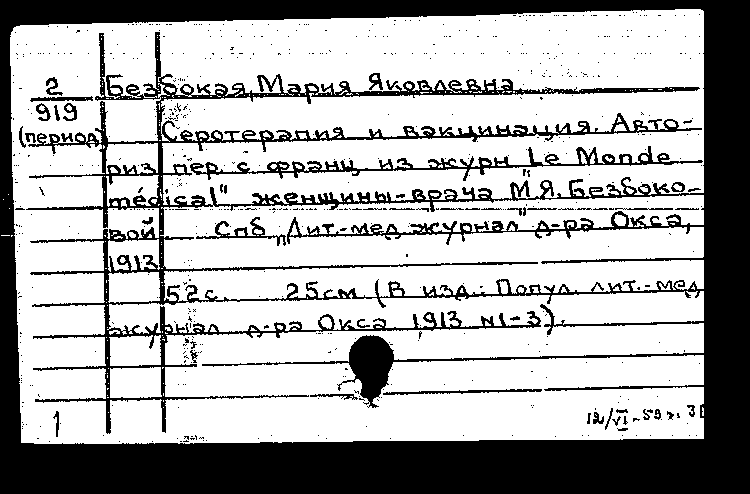 2 Безбокая, Мария Яковлевна
919
(период) Серотерапия и вакцинация. Авто-
риз пер. с франц из журн Le Monde
médical", женщины-врача М.Я. Безбоко-
вой. Спб „Лит.-мед журнал" д-ра Окса,
1913
52с. 25см (В изд.: Попул. лит.-мед
журнал д-ра Окса 1913 №1-3).
1 12/VI-59г.